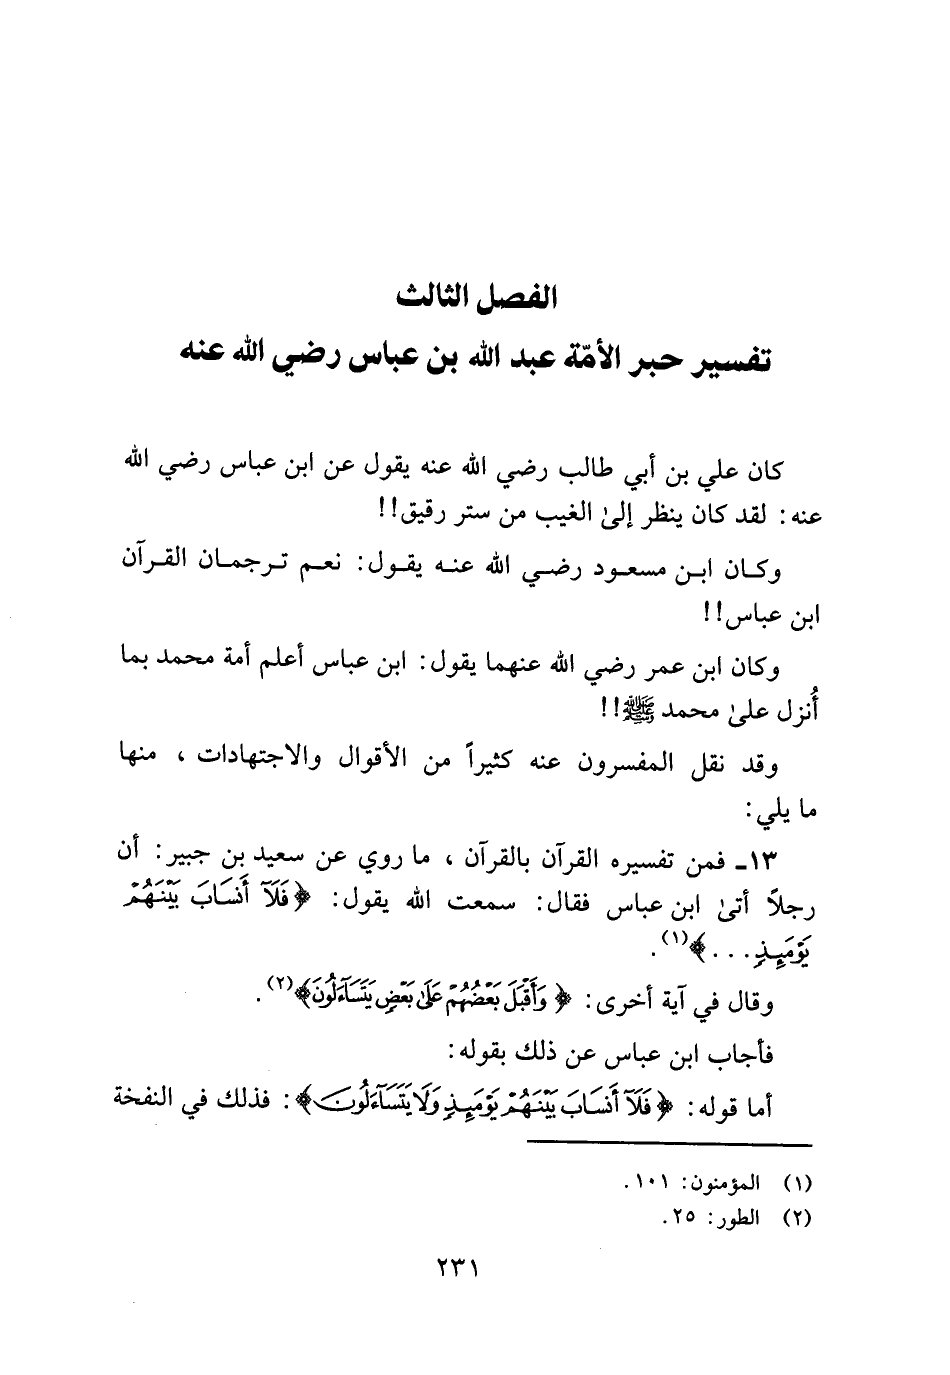 الفصل الثالث
تفسير حبر الأمّة عبد الله بن عباس رضي الله عنه
كان علي بن أبي طالب رضي الله عنه يقول عن ابن عباس رضي الله
عنه: لقد كان ينظر إلىٰ الغيب من ستر رقيق!!
وكان ابن مسعود رضي الله عنه يقول: نعم ترجمان القرآن
ابن عباس!!
وكان ابن عمر رضي الله عنهما يقول: ابن عباس أعلم أمة محمد بما
أُنزل علىٰ محمد ﷺ!!
وقد نقل المفسرون عنه كثيراً من الأقوال والاجتهادات ، منها
ما يلي:
١٣ـ فمن تفسيره القرآن بالقرآن ، ما روي عن سعيد بن جبير: أن
رجلاً أتىٰ ابن عباس فقال: سمعت الله يقول: ﴿فَلَآ أَنسَابَ بَيْنَهُمْ
يَوْمَئِذٍ...﴾(١).
وقال في آية أخرى: ﴿وَأَقْبَلَ بَعْضُهُمْ عَلَىٰ بَعْضٍ يَتَسَآءَلُونَ﴾(٢).
فأجاب ابن عباس عن ذلك بقوله:
أما قوله: ﴿فَلَآ أَنسَابَ بَيْنَهُمْ يَوْمَئِذٍ وَلَا يَتَسَآءَلُونَ﴾: فذلك في النفخة
(١) المؤمنون: ١٠١.
(٢) الطور: ٢٥.
٢٣١